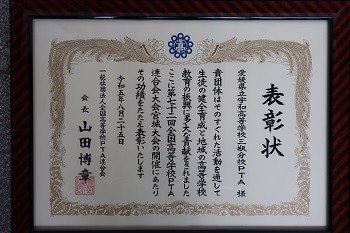 表彰状
愛媛県立宇和高等学校三瓶分校PTA 様
貴団体はそのすぐれた活動を通して
生徒の健全育成と地域の高等学校
教育の振興に多大な貢献をされました
ここに第七十二回全国高等学校PTA
連合会大会宮城大会の開催にあたり
その功績をたたえ表彰いたします
令和五年八月二十五日
一般社団法人全国高等学校PTA連合会
会長 山田博章